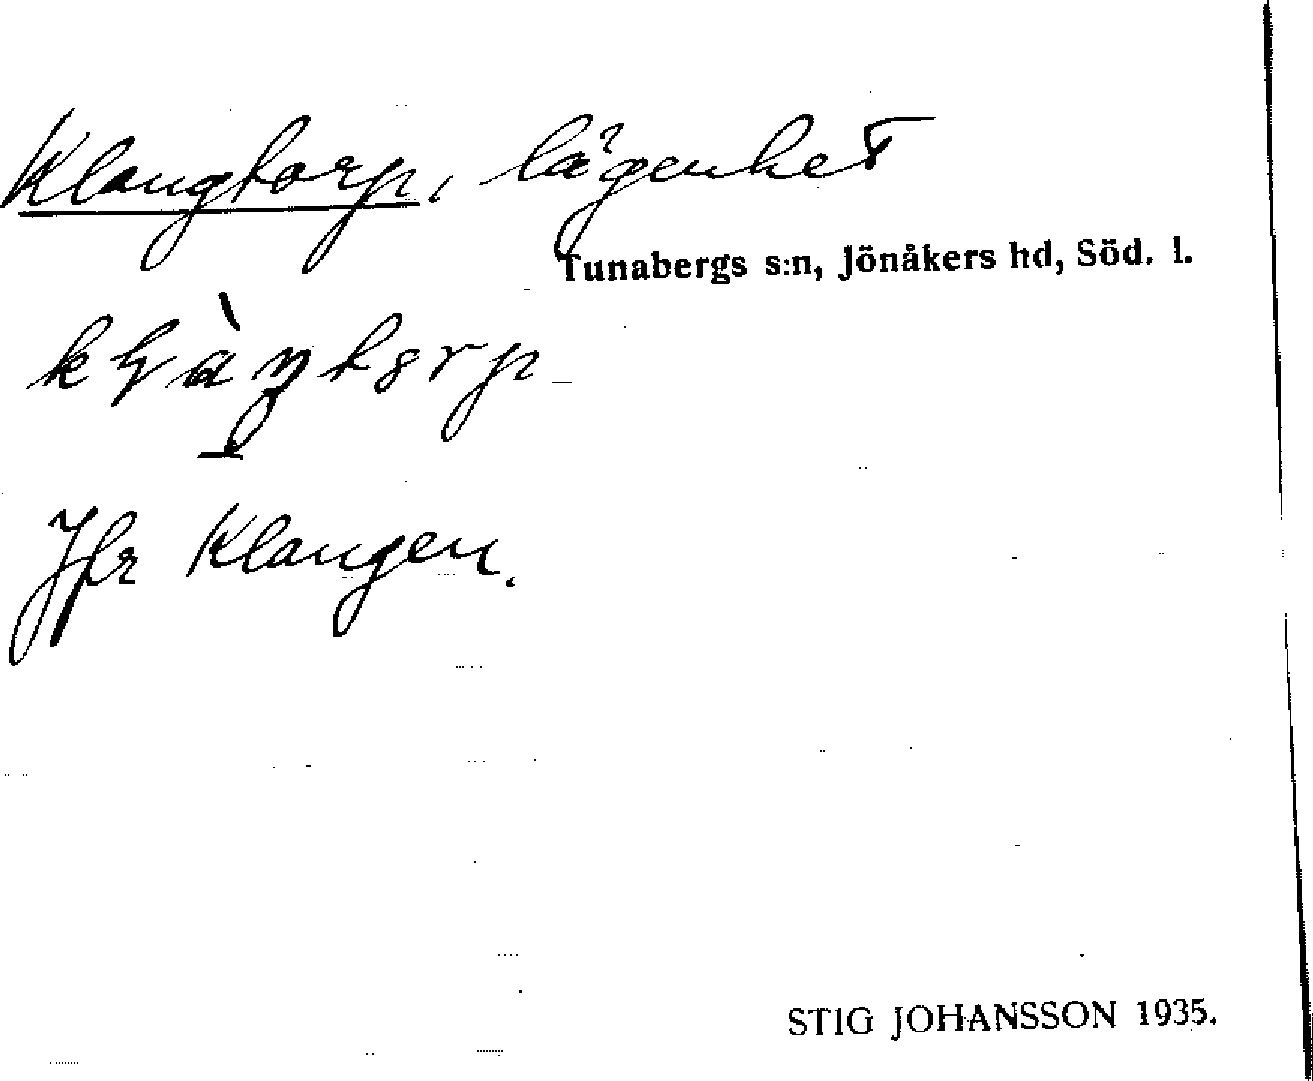 Klangtorp, lägenhet
Tunabergs s:n, Jönåkers hd, Söd. l.
Jfr Klangen.
STIG JOHANSSON 1935.